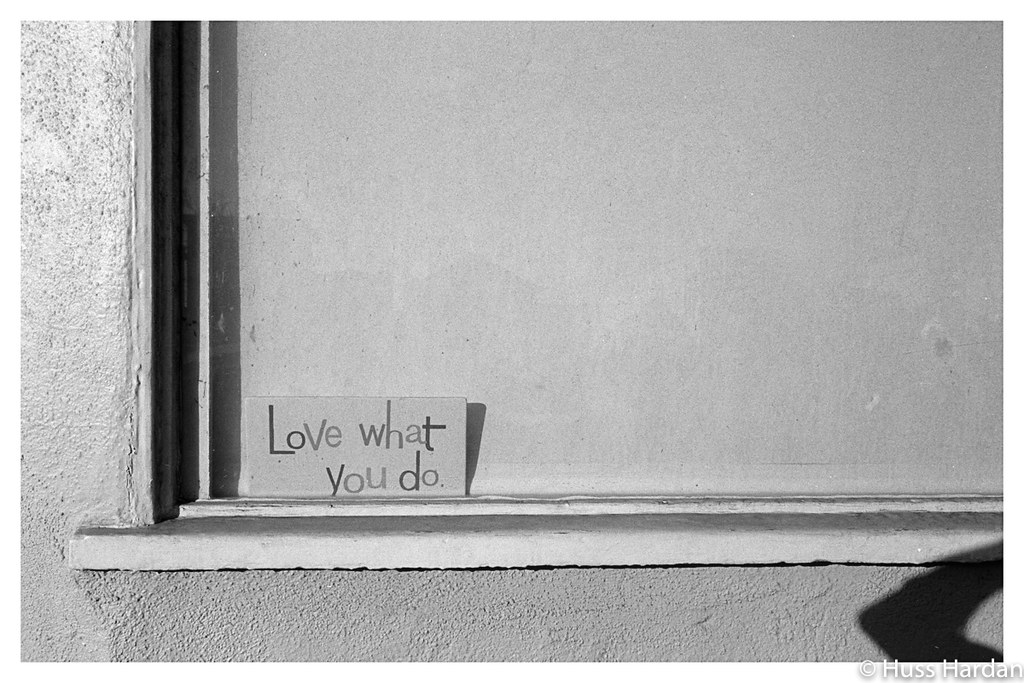 Love what
you do.
© Huss Hardan